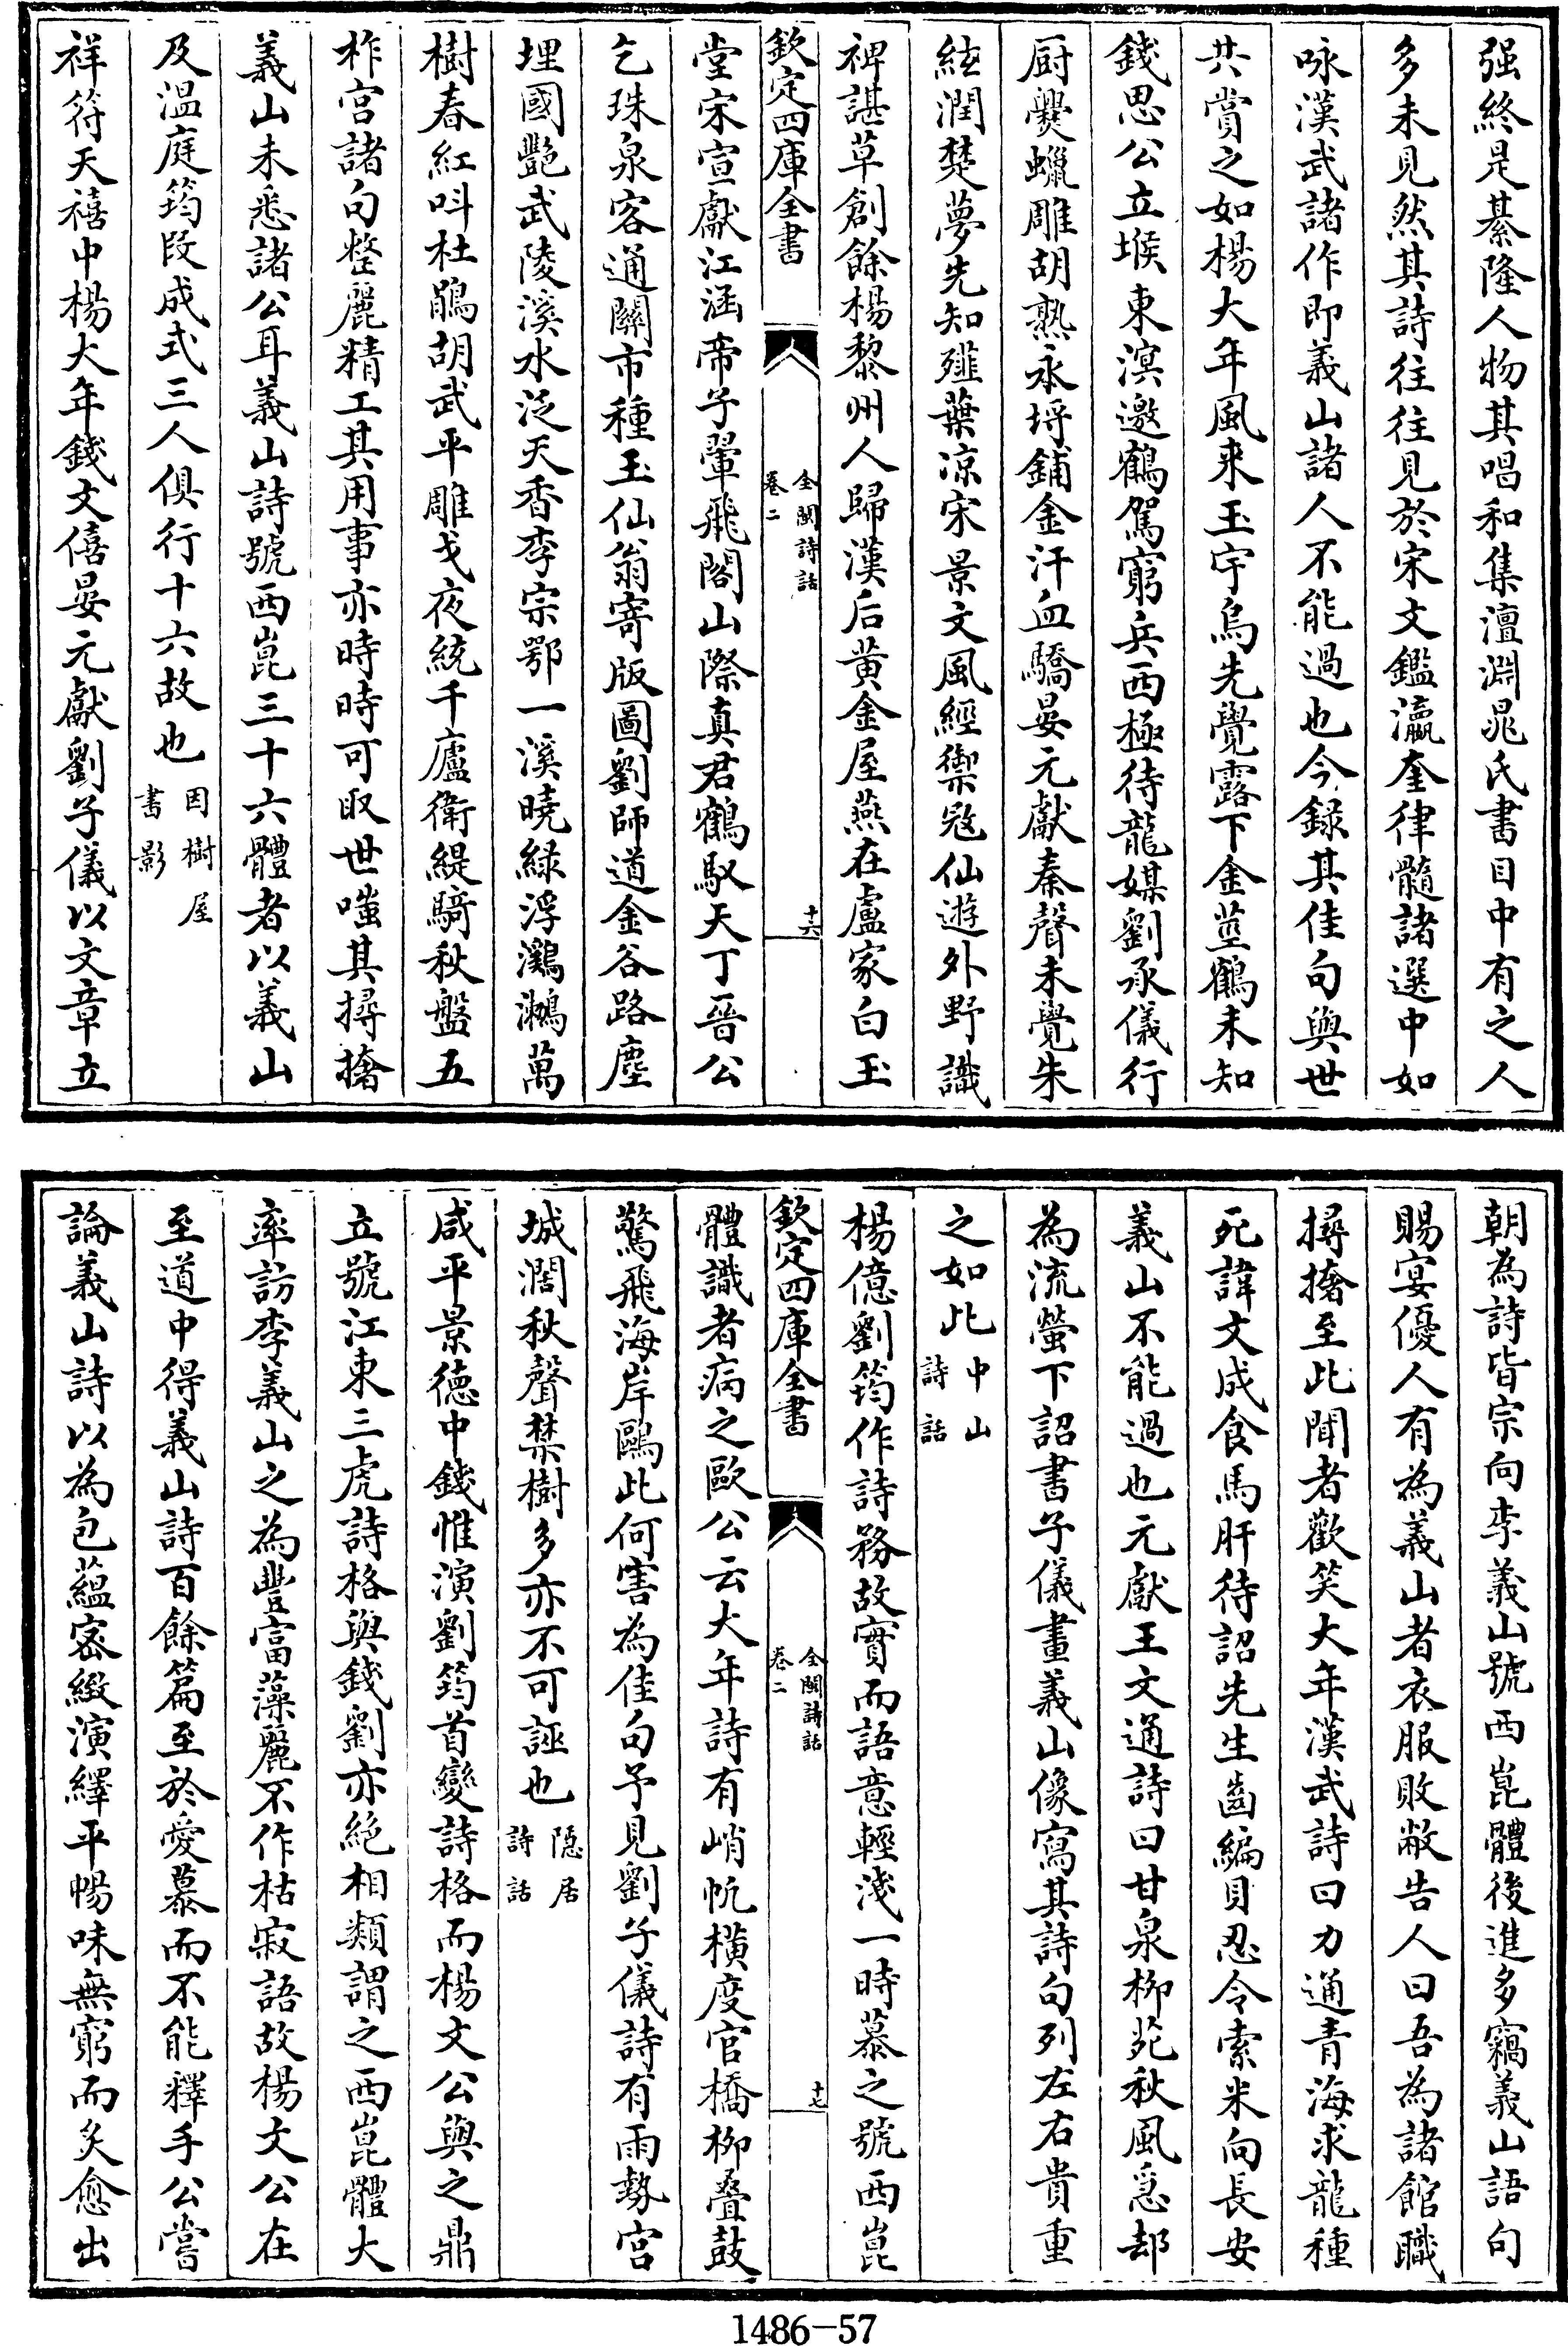 强終是綦隆人物其唱和集澶淵晁氏書目中有之人
多未見然其詩往往見於宋文鑑瀛奎律髓諸選中如
咏漢武諸作即義山諸人不能過也今録其佳句與世
共賞之如楊大年風来玉宇烏先覺露下金莖鶴未知
錢思公立堠東溟邀鶴駕窮兵西極待龍媒劉承儀行
厨爨蠟雕胡熟永埒鋪金汗血驕晏元獻秦聲未覺朱
絃潤楚夢先知薤葉凉宋景文風經禦宼仙遊外野識
裨諶草創餘楊黎州人歸漢后黄金屋燕在盧家白玉
欽定四庫全書
全閩詩話
卷二
十六
堂宋宣獻江涵帝子翬飛閣山際真君鶴馭天丁晉公
乞珠泉客通關市種玉仙翁寄版圖劉師道金谷路塵
埋國艷武陵溪水泛天香李宗鄂一溪曉緑浮鸂鶒萬
樹春紅呌杜鵑胡武平雕戈夜統千廬衛緹騎秋盤五
柞宫諸句整麗精工其用事亦時時可取世嗤其撏撦
義山未悉諸公耳義山詩號西崑三十六體者以義山
及温庭筠段成式三人俱行十六故也因樹屋
書影
祥符天禧中楊大年錢文僖晏元獻劉子儀以文章立
朝為詩皆宗向李義山號西崑體後進多竊義山語句
賜宴優人有為義山者衣服敗敝告人曰吾為諸館職
撏撦至此聞者歡笑大年漢武詩曰力通青海求龍種
死諱文成食馬肝待詔先生齒編貝忍令索米向長安
義山不能過也元獻王文通詩曰甘泉柳苑秋風急却
為流螢下詔書子儀畫義山像寫其詩句列左右貴重
之如此中山
詩話
楊億劉筠作詩務故實而語意輕淺一時慕之號西崑
欽定四庫全書
全閩詩話
卷二
十七
體識者病之歐公云大年詩有峭帆横度官橋柳叠鼓
驚飛海岸鷗此何害為佳句予見劉子儀詩有雨勢宫
城濶秋聲禁樹多亦不可誣也隠居
詩話
咸平景德中錢惟演劉筠首變詩格而楊文公與之鼎
立號江東三虎詩格與錢劉亦絶相類謂之西崑體大
率訪李義山之為豐富藻麗不作枯寂語故楊文公在
至道中得義山詩百餘篇至於愛慕而不能釋手公嘗
論義山詩以為包藴宻緻演繹平暢味無窮而炙愈出
1486-57